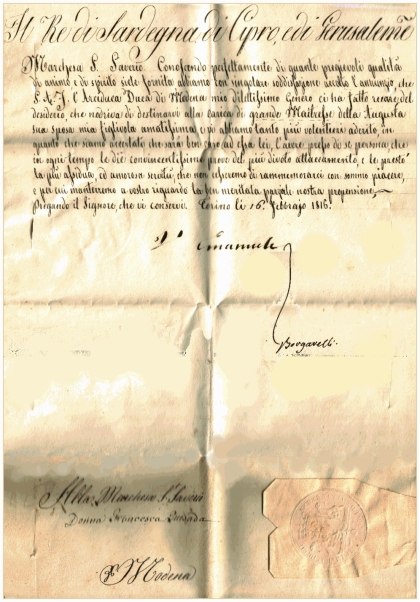 Il Re di Sardegna di Cipro, e di Gerusalemme
Marchesa S. Saverio. Conoscendo perfettamente di quante pregievoli qualità
di animo e di spirito siete fornita abbiamo con singolare soddisfazione accolto l'annunzio, che
S.A.R. l'Arciduca Duca di Modena mio dilettissimo Genero ci ha fatto recare del
desiderio, che nudriva di destinarvi alla carica di grande Maitresse della Augusta
sua sposa mia figlivola amatissima, e vi abbiamo tanto più volentieri aderito, in
quanto che siamo accertati che sarà ben caro ad essa lei, l'avere presso di se persona, che
in ogni tempo le diè convincentissime prove del più divoto attaccamento, e le prestò
la più assidua, ed amorosa servitù, che non cesseremo di rammemorarci con sommo piacere,
e per cui manterremo a vostro riguardo la ben meritata parziale nostra propensione,
Pregando il Signore, che vi conservi. Torino li 16. febbrajo 1816.
V. Emanuele
Borgarelli
Alla Marchesa S. Saverio
Donna Francesca Quesada
Modena